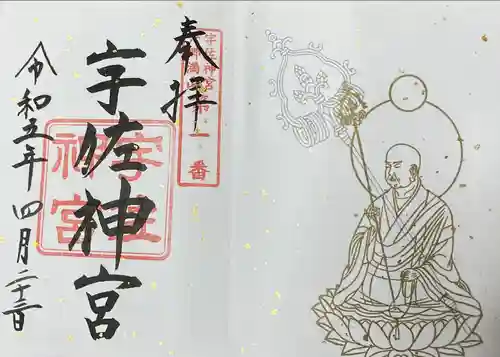 奉拝
宇佐神宮
令和五年四月二十三日
宇佐神宮
一番